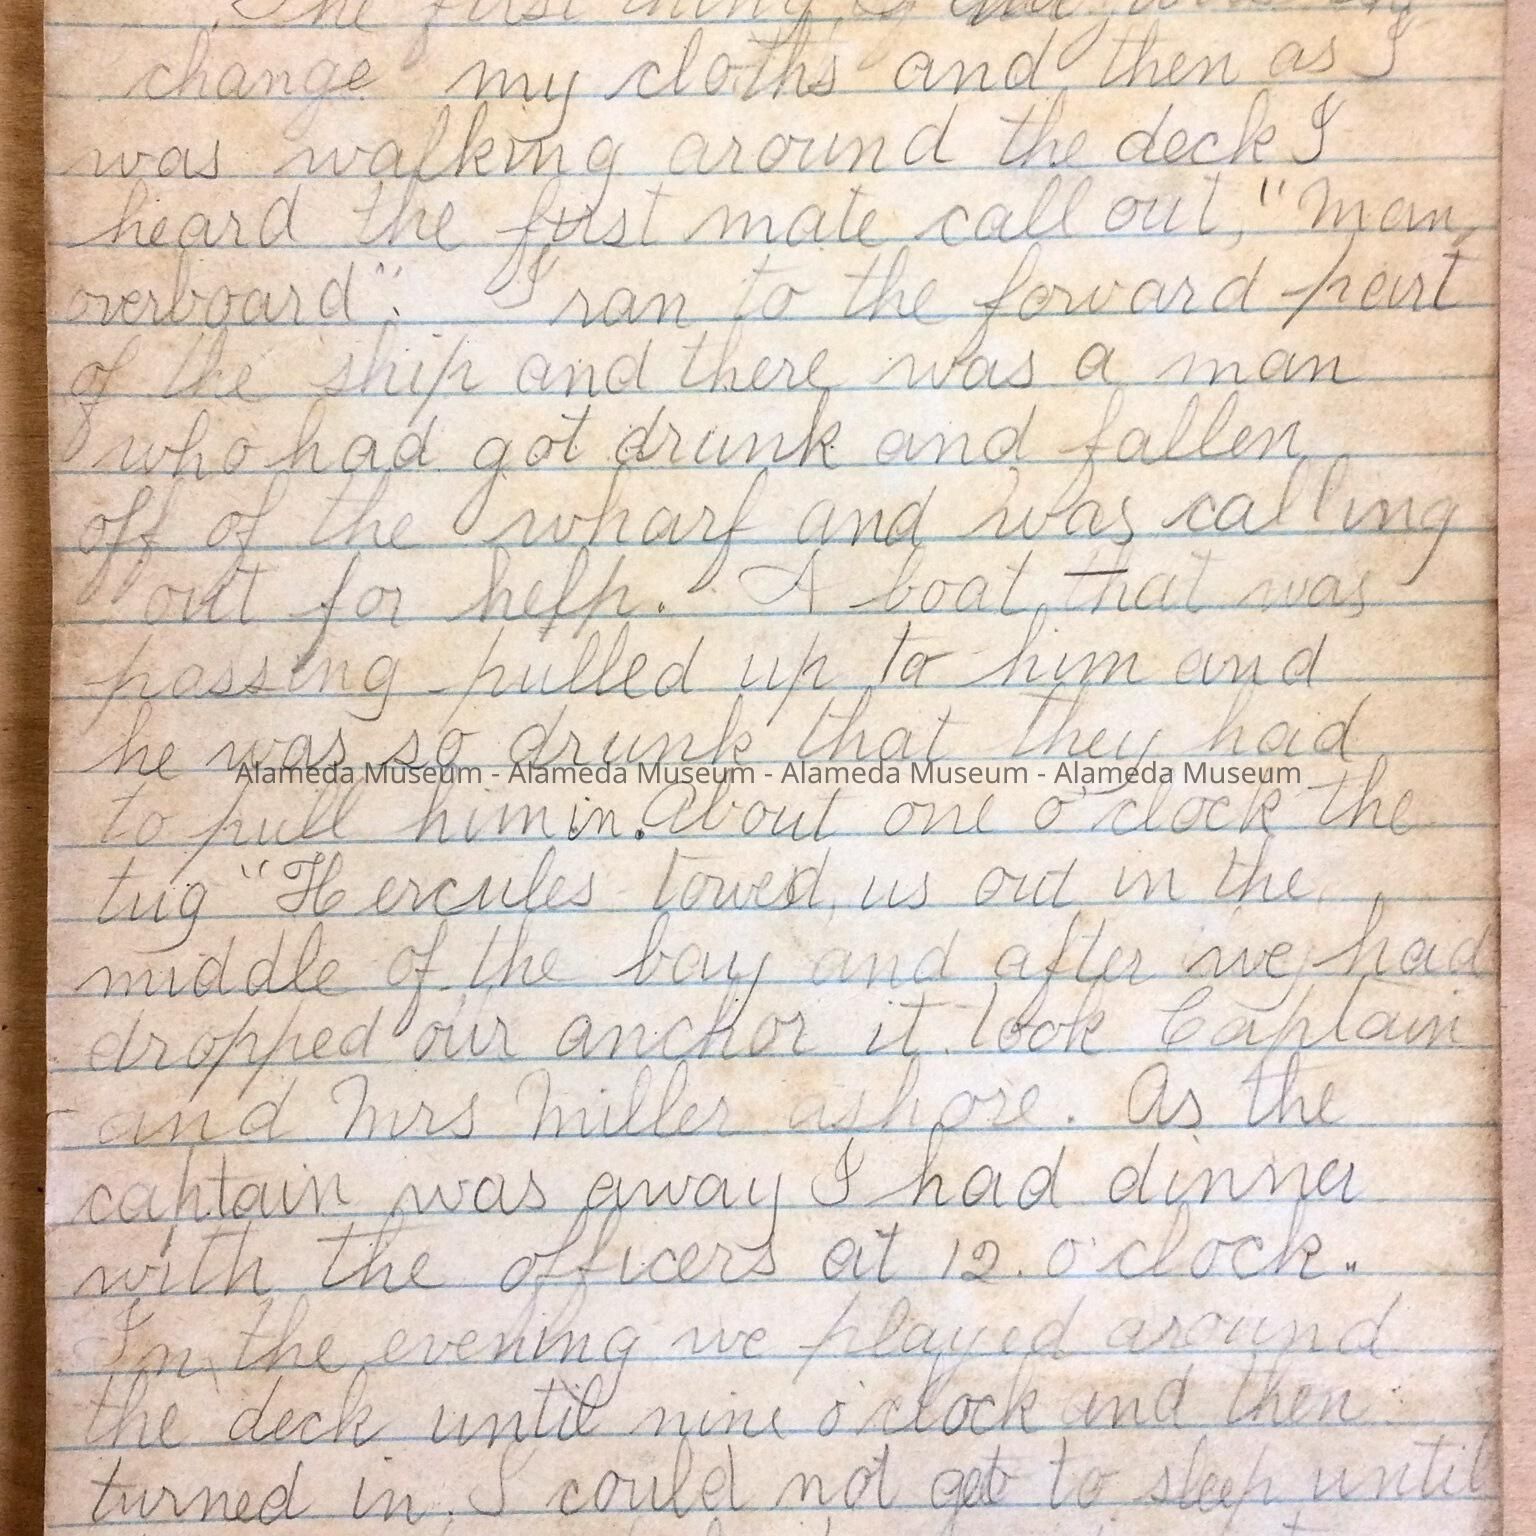 The first thing I did was to
change my cloths and then as I
was walking around the deck I
heard the first mate call out, "Man
overboard". I ran to the forward part
of the ship and there was a man
who had got drunk and fallen
off of the wharf and was calling
out for help. A boat that was
passing pulled up to him and
he was so drunk that they had
Alameda Museum - Alameda Museum - Alameda Museum - Alameda Museum
to pull him in. About one o'clock the
tug "Hercules towed us out in the
middle of the bay and after we had
dropped our anchor it took Captain
and Mrs Miller ashore. As the
captain was away I had dinner
with the officers at 12. o'clock..
In the evening we played around
the deck until nine o'clock and then
turned in. I could not get to sleep until